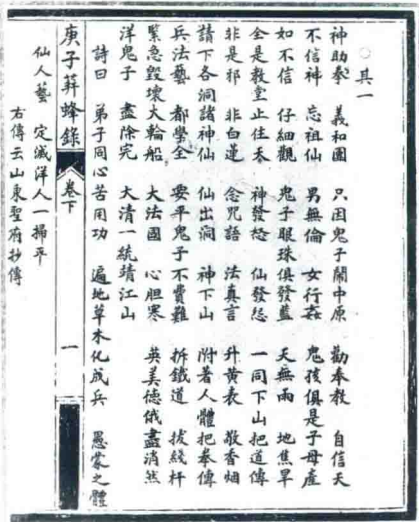 ○其一
神助拳　義和團　只因鬼子鬧中原　勸奉教　自信天
不信神　忘祖仙　男無倫　女行姦　鬼孩俱是子母產
如不信　仔細觀　鬼子眼珠俱發藍　天無雨　地焦旱
全是教堂止住天　神發怒　仙發怒　一同下山把道傳
非是邪　非白蓮　念咒語　法真言　升黃表　敬香烟
請下各洞諸神仙　仙出洞　神下山　附著人體把拳傳
兵法藝　都學全　要平鬼子不費難　拆鐵道　拔綫杆
緊急毀壞大輪船　大法國　心胆寒　英美德俄盡消然
洋鬼子　盡除完　大清一統靖江山
詩曰　弟子同心苦用功　遍地草木化成兵　愚蒙之體
庚子莽蜂錄　卷下　一
仙人藝　定滅洋人一掃平
右傳云山東聖府抄傳